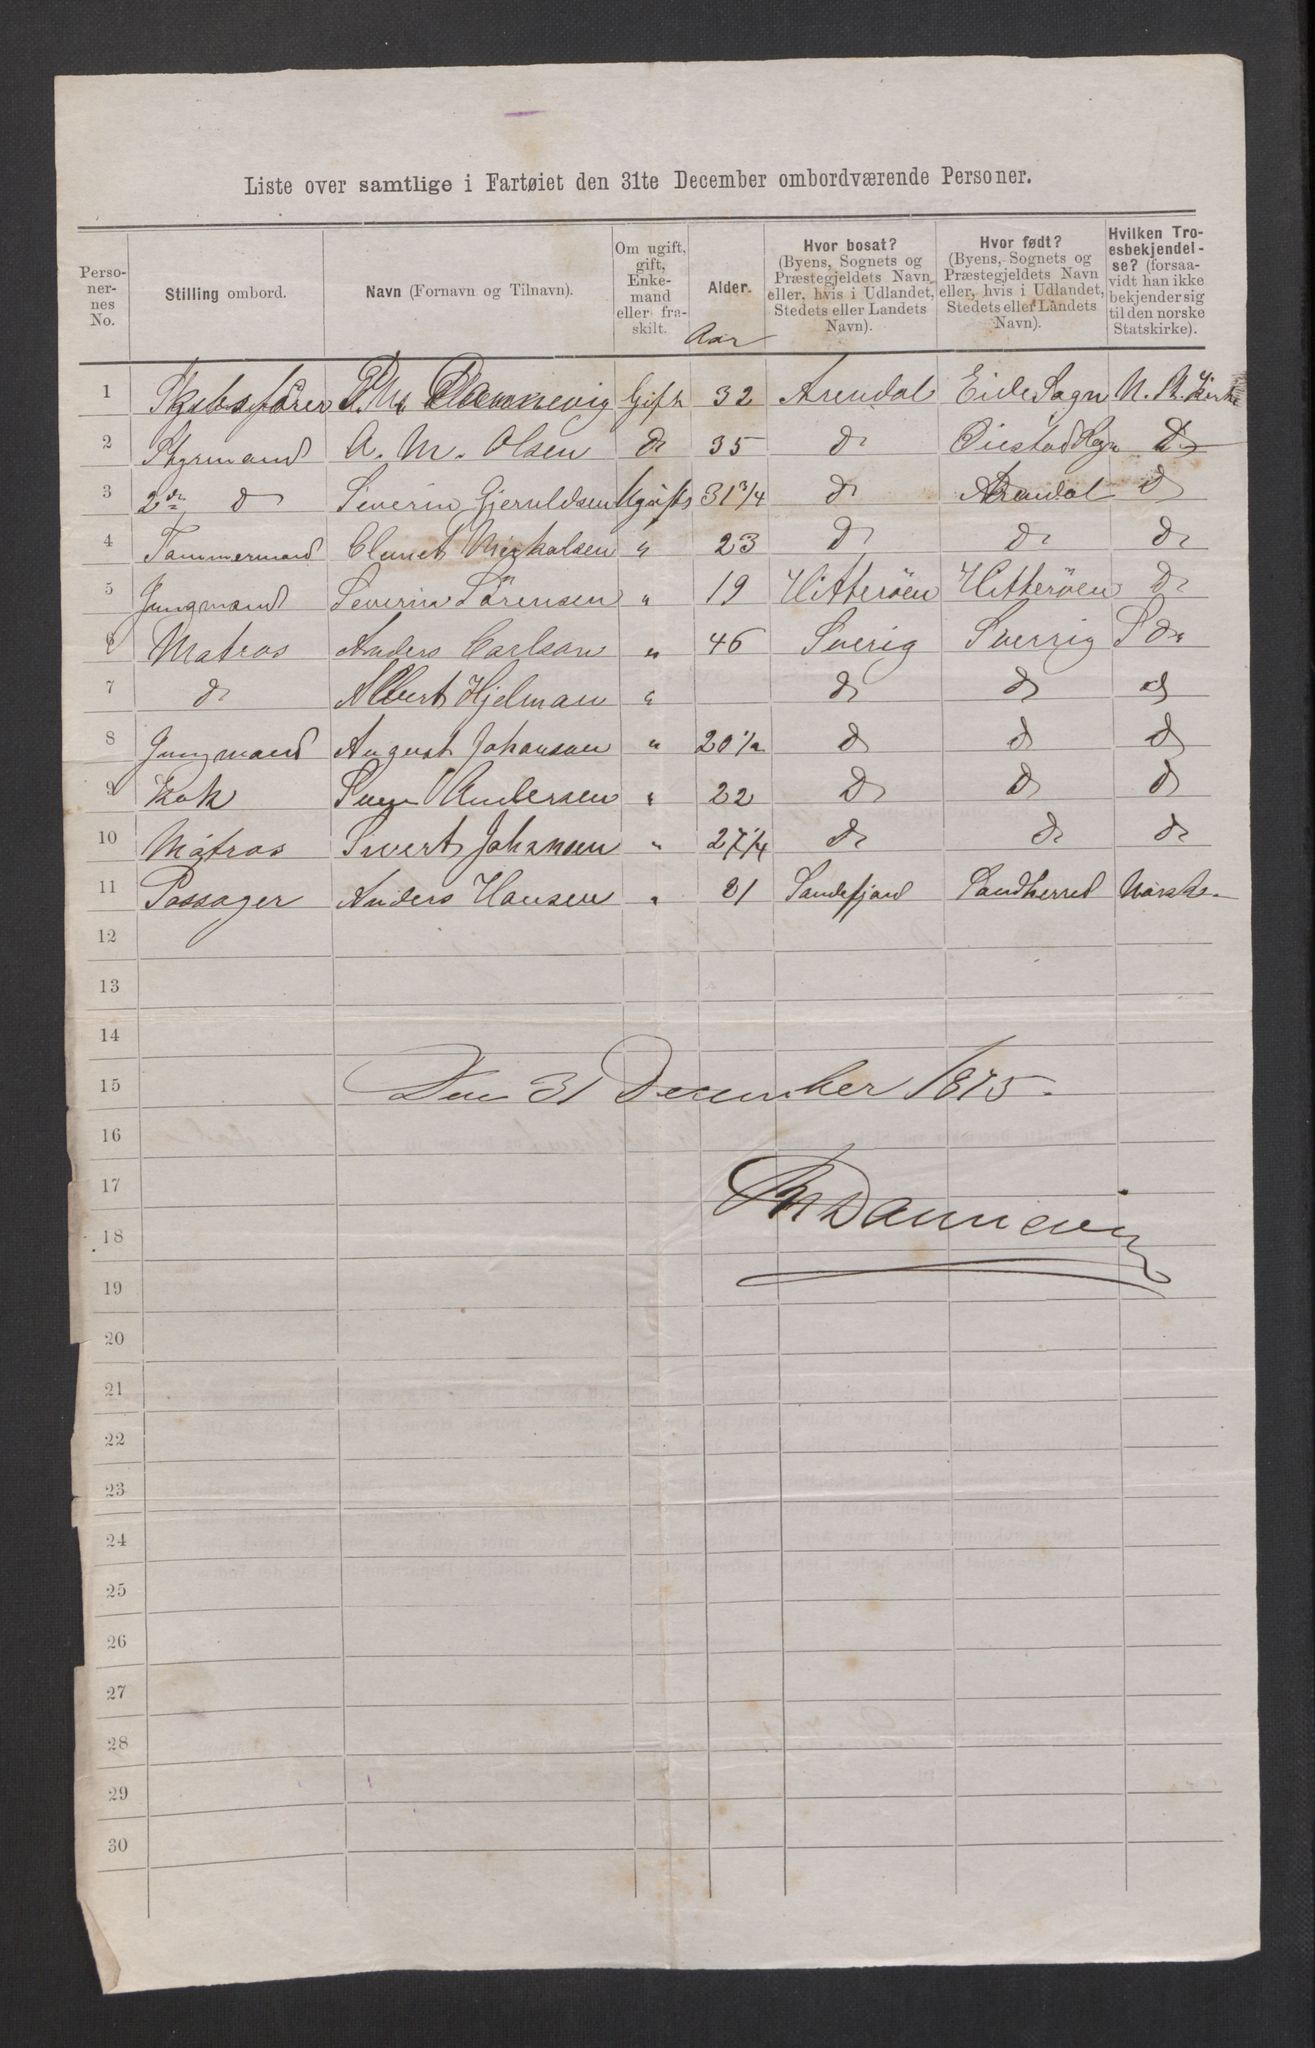 Liste over samtlige i Fartøiet den 31te December ombordværende Personer.
Perso-
ner-
nes
No.
Stilling ombord.
Navn (Fornavn og Tilnavn).
Om ugift,
gift,
Enke-
mand
eller fra-
skilt.
Alder.
Aar
Hvor bosat?
(Byens, Sognets og
Præstegjeldets Navn
eller, hvis i Udlandet,
Stedets eller Landets
Navn).
Hvor født?
(Byens, Sognets og
Præstegjeldets Navn
eller, hvis i Udlandet,
Stedets eller Landets
Navn).
Hvilken Tro-
esbekjendel-
se? (forsaa-
vidt han ikke
bekjender sig
til den norske
Statskirke).
1 Skibsfører Dannevig Gift 32 Arendal Eide Sogn N. Kirke
2 Styrmand A. M. Olsen do 35 do Öiestad Sogn do
3 2den do Severin Gjeruldsen Ugift 31 3/4 do Arendal do
4 Tømmermand Nickolsen " 23 do do do
5 Jungmand Severin Sörensen " 19 Hitteröen Hitteröen do
6 Matros Anders Carlson " 46 Sverig Sverrig S do
7 do Albert Hjelman " do do do
8 Jungmand August Johanson " 20 1/2 do do do
9 Kok Andersen " 22 do do do
10 Matros Sivert Johansen " 27 1/4 do do do
11 Passager Anders Hansen " 21 Sandefjord Sandherred Norske
12
13
14
15 Den 31 December 1875.
16
17 Dannevig
18
19
20
21
22
23
24
25
26
27
28
29
30